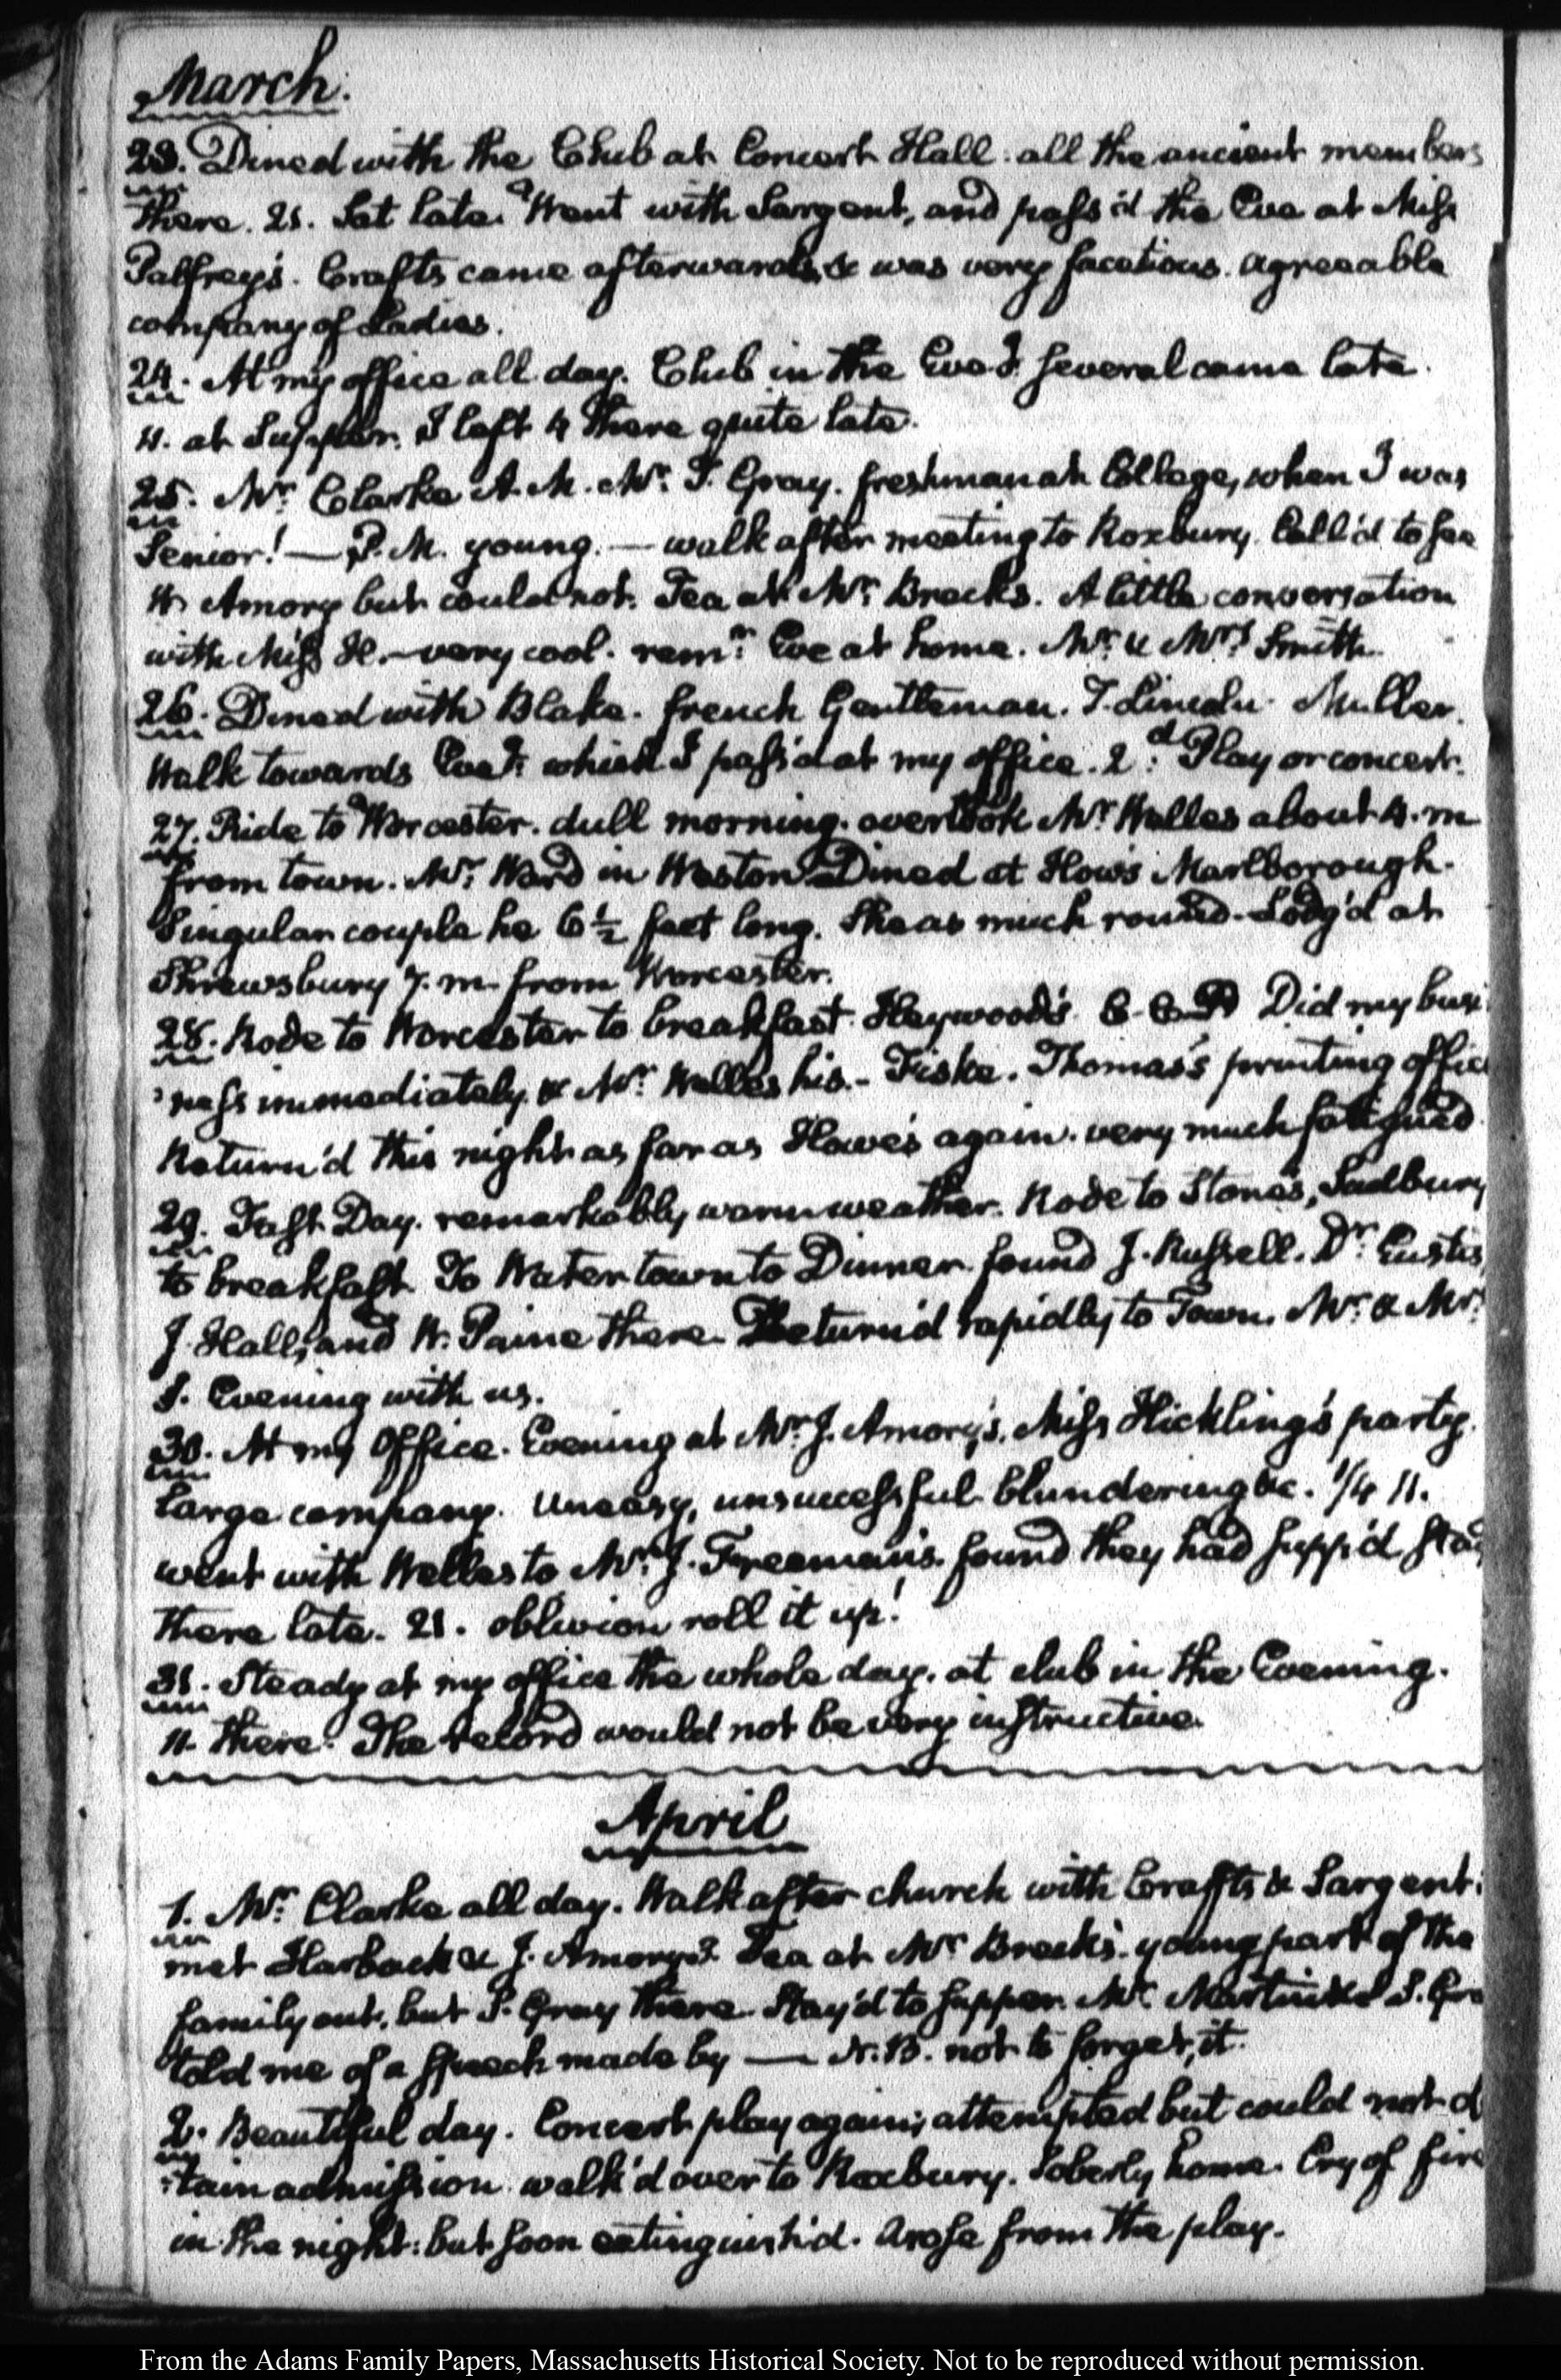 March.
23. Dined with the Club at Concert Hall. all the ancient members
there. 21. Set late. Went with Sargent, and pass'd the Eve at Miss
Palfrey's. Crafts came afterwards, & was very facetious. agreeable
company of Ladies.
24. At my office all day. Club in the Eveg. several came late.
11. at Supper. I left 4 there quite late.
25. Mr. Clarke A.M. Mr. T. Gray. freshman at College, when I was
Senior! — P.M. young. — walk after meeting to Roxbury. Call'd to see
Amory but could not. Tea at Mr. Breck's. A little conversation
with Miss H. — very cool. remr. Eve at home. Mr. & Mrs. Smith.
26. Dined with Blake. french Gentleman. T. Lincoln. Muller.
Walk towards Eveg. which I pass'd at my office. 2d. Play or concert.
27. Ride to Worcester. dull morning. overtook Mr. Welles about 4. m
from town. Mr. Ward in Weston. Dined at How's Marlborough.
Singular couple he 6½ feet long. She as much round. Lodg'd at
Shrewsbury 7. m. from Worcester.
28. Rode to Worcester to breakfast. Heywood's. Did my busi-
:ness immediately & Mr. Welles his. - Fiske. Thomas's printing office
Return'd this night as far as Howe's again. very much fatigued
29. Fast Day. remarkably warm weather. Rode to Stone's, Sudbury
to breakfast. To Watertown to Dinner. found J. Russell. Dr. Eustis,
J. Hall, and W. Paine there. Return'd rapidly to Town. Mr. & Mrs.
S. Evening with us.
30. At my Office. Evening at Mr. J. Amory's. Miss Hickling's party.
Large company. Uneasy, unsuccessful blundering &c. 1/4 11.
went with Welles to Mr. J. Freeman's. found they had supp'd. stay
there late. 21. oblivion roll it up!
31. Steady at my office the whole day. at club in the Evening.
11. there. The record would not be very instructive.
April
1. Mr. Clarke all day. Walk after church with Crafts & Sargent:
met Harback & J. Amory. Tea at Mr. Breck's. young part of the
family out, but S. Gray there. Stay'd to supper. Mr. S. Gra
told me of a speech made by — N.B. not to forget it.
2. Beautiful day. Concert play again; attempted but could not
:tain admission. walk'd over to Roxbury. Soberly home. Cry of fire
in the night: but soon extinguish'd. Arose from the play.
From the Adams Family Papers, Massachusetts Historical Society. Not to be reproduced without permission.